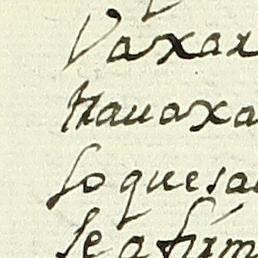 Vaxar
trauaxa
so que sa
se a firm